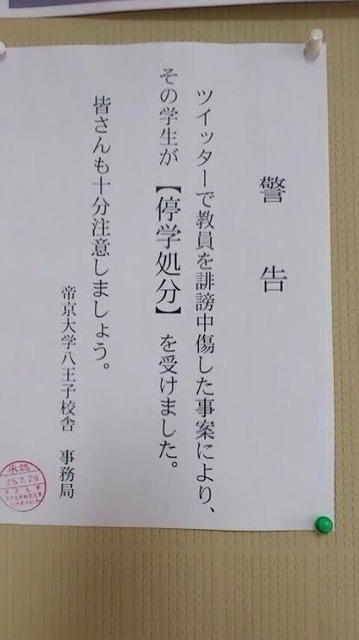 警告
ツイッターで教員を誹謗中傷した事案により、
その学生が【停学処分】を受けました。
皆さんも十分注意しましょう。
帝京大学八王子校舎 事務局
承認
25.7.29